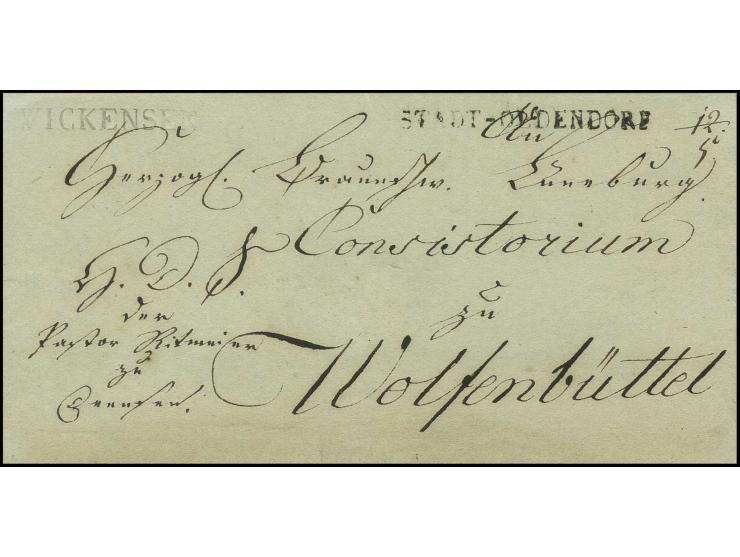 WICKENSEN STADT-OLDENDORF
An
12/5
Herzogl. Braunschw. Lüneburg.
Consistorium
H. D. S.
der
Pastor Ritmeier
zu
zu
Wolfenbüttel